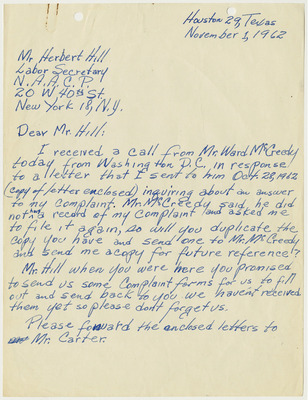 Houston 29, Texas
November 1, 1962
Mr Herbert Hill
Labor Secretary
N.A.A.C.P.
20 W 40th St
New York 18, N.Y.
Dear Mr Hill:
I received a call from Mr. Ward McCreedy
today from Washington D.C. in response
to a letter that I sent to him Oct. 28, 1962
(copy of letter enclosed) inquiring about an answer
to my Complaint. Mr. McCreedy said, he did
not have record of my Complaint and asked me
to file it again, so will you duplicate the
copy you have and send one to Mr. McCreedy
and send me a copy for future reference!?
Mr. Hill when you were here you promised
to send us some Complaint forms for us to fill
out and send back to you we havent received
them yet so please dont forget us.
Please forward the enclosed letters to
Mr. Carter.